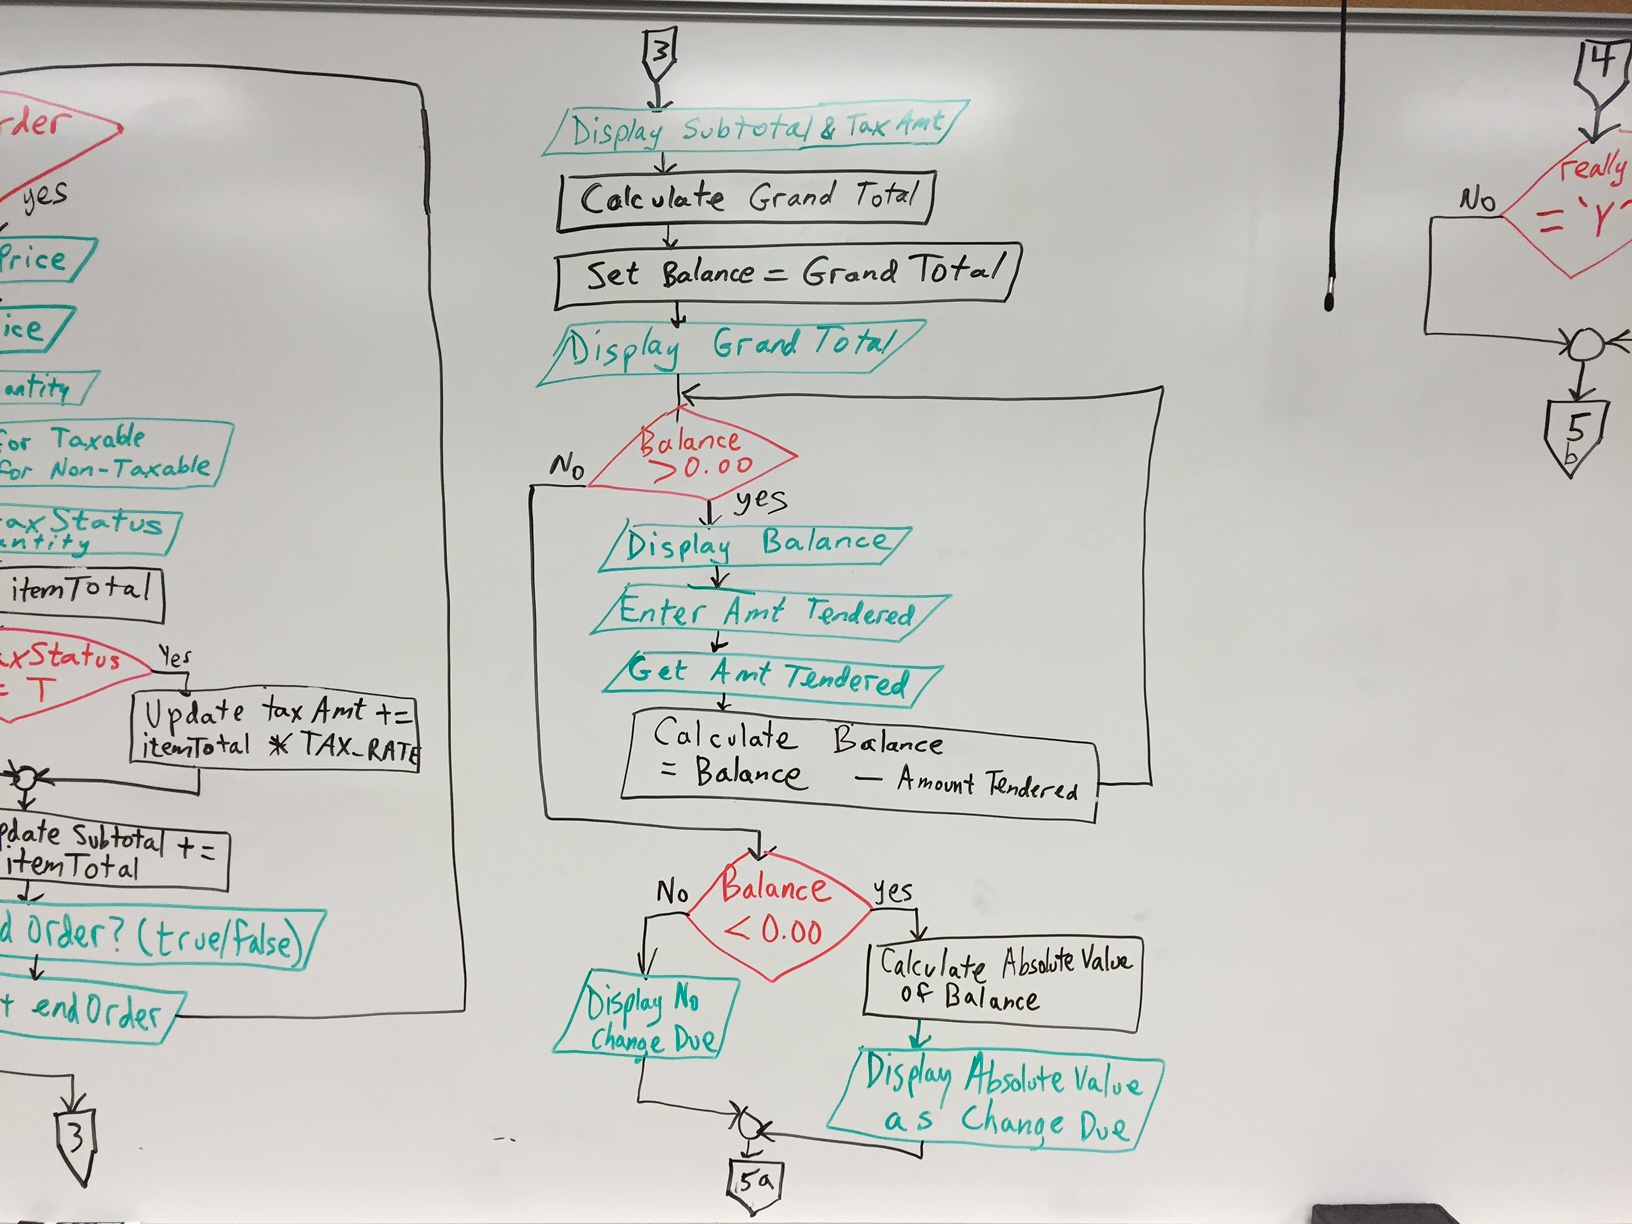 rder
yes
Price
ice
antity
for Taxable
for Non-Taxable
axStatus
antity
itemTotal
axStatus
= T
Yes
Update taxAmt +=
itemTotal * TAX_RATE
pdate Subtotal +=
itemTotal
d Order? (true/false)
t endOrder
3
3
Display Subtotal & Tax Amt
Calculate Grand Total
Set Balance = Grand Total
Display Grand Total
Balance
>0.00
No
yes
Display Balance
Enter Amt Tendered
Get Amt Tendered
Calculate Balance
= Balance — Amount Tendered
Balance
< 0.00
No
yes
Display No
Change Due
Calculate Absolute Value
of Balance
Display Absolute Value
as Change Due
5a
4
really
= 'Y'
No
5
b